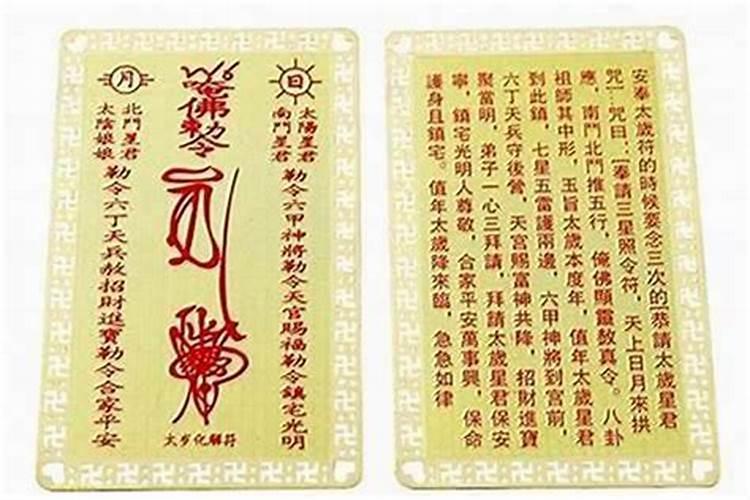 日
太陽星君
南鬥星君
勒令六甲神將勒令天官賜福勒令鎮宅光明
唵佛勅令
太岁化解符
月
北鬥星君
太陰娘娘
勒令六丁天兵敕招財進寶勒令合家平安
安奉太歲符的時候要念三次的[恭請太歲星君
咒]…咒曰:[奉請三星照令符,天上日月來拱
應,南鬥北鬥推五行,俺佛顯靈敖真令。八卦
祖師其中形,玉旨太歲本度年,值年太歲星君
到此鎮,七星五雷護兩邊,六甲神將到宮前,
六丁天兵守後營,天宮賜富神共降,招財進寶
聚當明,弟子一心三拜請,拜請太歲星君保安
寧,鎮宅光明人尊敬,合家平安萬事興,保命
護身且鎮宅。值年太歲降來臨,急急如律